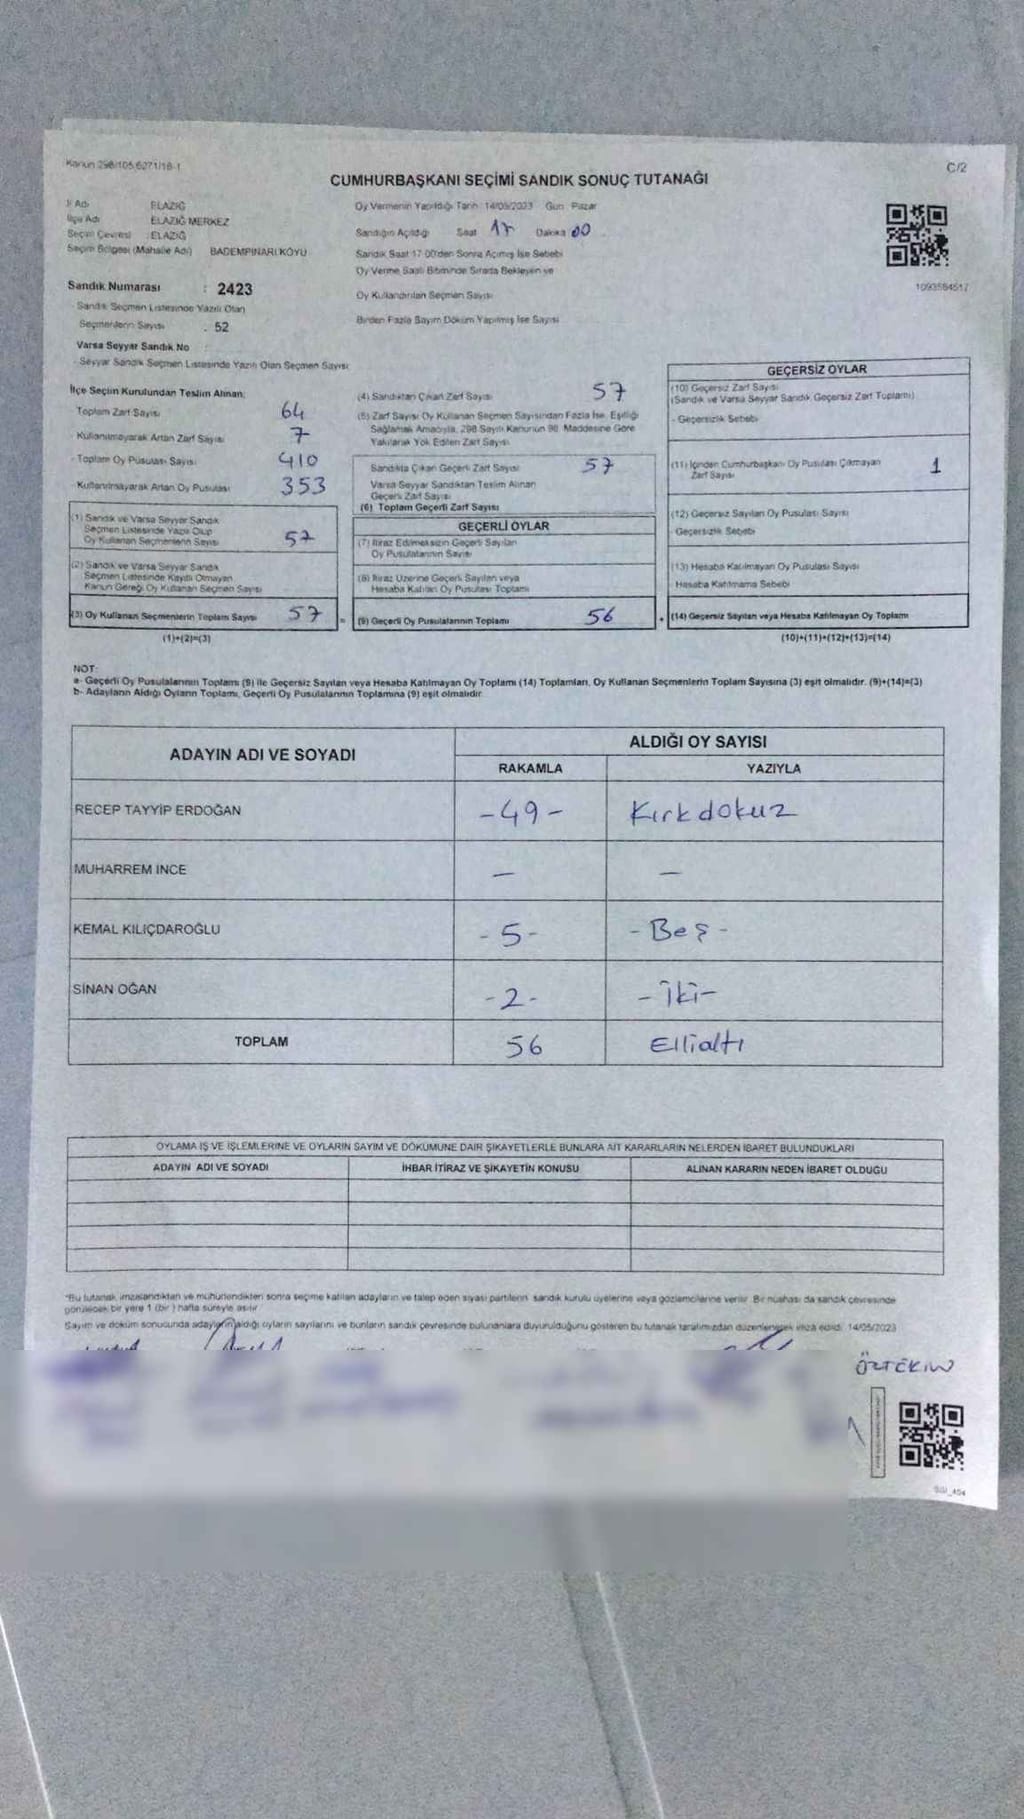 Kanun 298/105,6271/18-1
C/2
CUMHURBAŞKANI SEÇİMİ SANDIK SONUÇ TUTANAĞI
İl Adı ELAZIĞ
İlçe Adı ELAZIĞ MERKEZ
Seçim Çevresi : ELAZIĞ
Seçim Bölgesi (Mahalle Adı) BADEMPINARI KÖYÜ
Oy Vermenin Yapıldığı Tarih 14/05/2023 Gün : Pazar
Sandığın Açıldığı Saat 17 Dakika 00
Sandık Saat 17:00'den Sonra Açılmış İse Sebebi
Oy Verme Saati Bitiminde Sırada Bekleyen ve
Oy Kullandırılan Seçmen Sayısı
Birden Fazla Sayım Döküm Yapılmış İse Sayısı
Sandık Numarası : 2423
- Sandık Seçmen Listesinde Yazılı Olan
Seçmenlerin Sayısı : 52
Varsa Seyyar Sandık No
- Seyyar Sandık Seçmen Listesinde Yazılı Olan Seçmen Sayısı:
1093584517
İlçe Seçim Kurulundan Teslim Alınan:
Toplam Zarf Sayısı 64
- Kullanılmayarak Artan Zarf Sayısı 7
- Toplam Oy Pusulası Sayısı 410
Kullanılmayarak Artan Oy Pusulası 353
(1) Sandık ve Varsa Seyyar Sandık
Seçmen Listesinde Yazılı Olup
Oy Kullanan Seçmenlerin Sayısı 57
(2) Sandık ve Varsa Seyyar Sandık
Seçmen Listesinde Kayıtlı Olmayan
Kanun Gereği Oy Kullanan Seçmen Sayısı
(3) Oy Kullanan Seçmenlerin Toplam Sayısı 57
(1)+(2)=(3)
(4) Sandıktan Çıkan Zarf Sayısı 57
(5) Zarf Sayısı Oy Kullanan Seçmen Sayısından Fazla İse, Eşitliği
Sağlamak Amacıyla, 298 Sayılı Kanunun 98. Maddesine Göre
Yakılarak Yok Edilen Zarf Sayısı
Sandıkta Çıkan Geçerli Zarf Sayısı 57
Varsa Seyyar Sandıktan Teslim Alınan
Geçerli Zarf Sayısı
(6) Toplam Geçerli Zarf Sayısı
GEÇERLİ OYLAR
(7) İtiraz Edilmeksizin Geçerli Sayılan
Oy Pusulalarının Sayısı
(8) İtiraz Üzerine Geçerli Sayılan veya
Hesaba Katılan Oy Pusulası Toplamı
= (9) Geçerli Oy Pusulalarının Toplamı 56 +
GEÇERSİZ OYLAR
(10) Geçersiz Zarf Sayısı
(Sandık ve Varsa Seyyar Sandık Geçersiz Zarf Toplamı)
- Geçersizlik Sebebi
(11) İçinden Cumhurbaşkanı Oy Pusulası Çıkmayan
Zarf Sayısı 1
(12) Geçersiz Sayılan Oy Pusulası Sayısı
- Geçersizlik Sebebi
(13) Hesaba Katılmayan Oy Pusulası Sayısı
- Hesaba Katılmama Sebebi
(14) Geçersiz Sayılan veya Hesaba Katılmayan Oy Toplamı
(10)+(11)+(12)+(13)=(14)
NOT:
a- Geçerli Oy Pusulalarının Toplamı (9) ile Geçersiz Sayılan veya Hesaba Katılmayan Oy Toplamı (14) Toplamları, Oy Kullanan Seçmenlerin Toplam Sayısına (3) eşit olmalıdır. (9)+(14)=(3)
b- Adayların Aldığı Oyların Toplamı, Geçerli Oy Pusulalarının Toplamına (9) eşit olmalıdır.
ADAYIN ADI VE SOYADI ALDIĞI OY SAYISI
RAKAMLA YAZIYLA
RECEP TAYYİP ERDOĞAN -49- Kırkdokuz
MUHARREM İNCE - -
KEMAL KILIÇDAROĞLU -5- -Beş-
SİNAN OĞAN -2- -İki-
TOPLAM 56 Ellialtı
OYLAMA İŞ VE İŞLEMLERİNE VE OYLARIN SAYIM VE DÖKÜMÜNE DAİR ŞİKAYETLERLE BUNLARA AİT KARARLARIN NELERDEN İBARET BULUNDUKLARI
ADAYIN ADI VE SOYADI İHBAR İTİRAZ VE ŞİKAYETİN KONUSU ALINAN KARARIN NEDEN İBARET OLDUĞU
*Bu tutanak, imzalandıktan ve mühürlendikten sonra seçime katılan adayların ve talep eden siyasi partilerin sandık kurulu üyelerine veya gözlemcilerine verilir. Bir nüshası da sandık çevresinde
görülecek bir yere 1 (bir) hafta süreyle asılır.
Sayım ve döküm sonucunda adayların aldığı oyların sayılarını ve bunların sandık çevresinde bulunanlara duyurulduğunu gösteren bu tutanak tarafımızdan düzenlenerek imza edildi. 14/05/2023
ÖZTEKİN